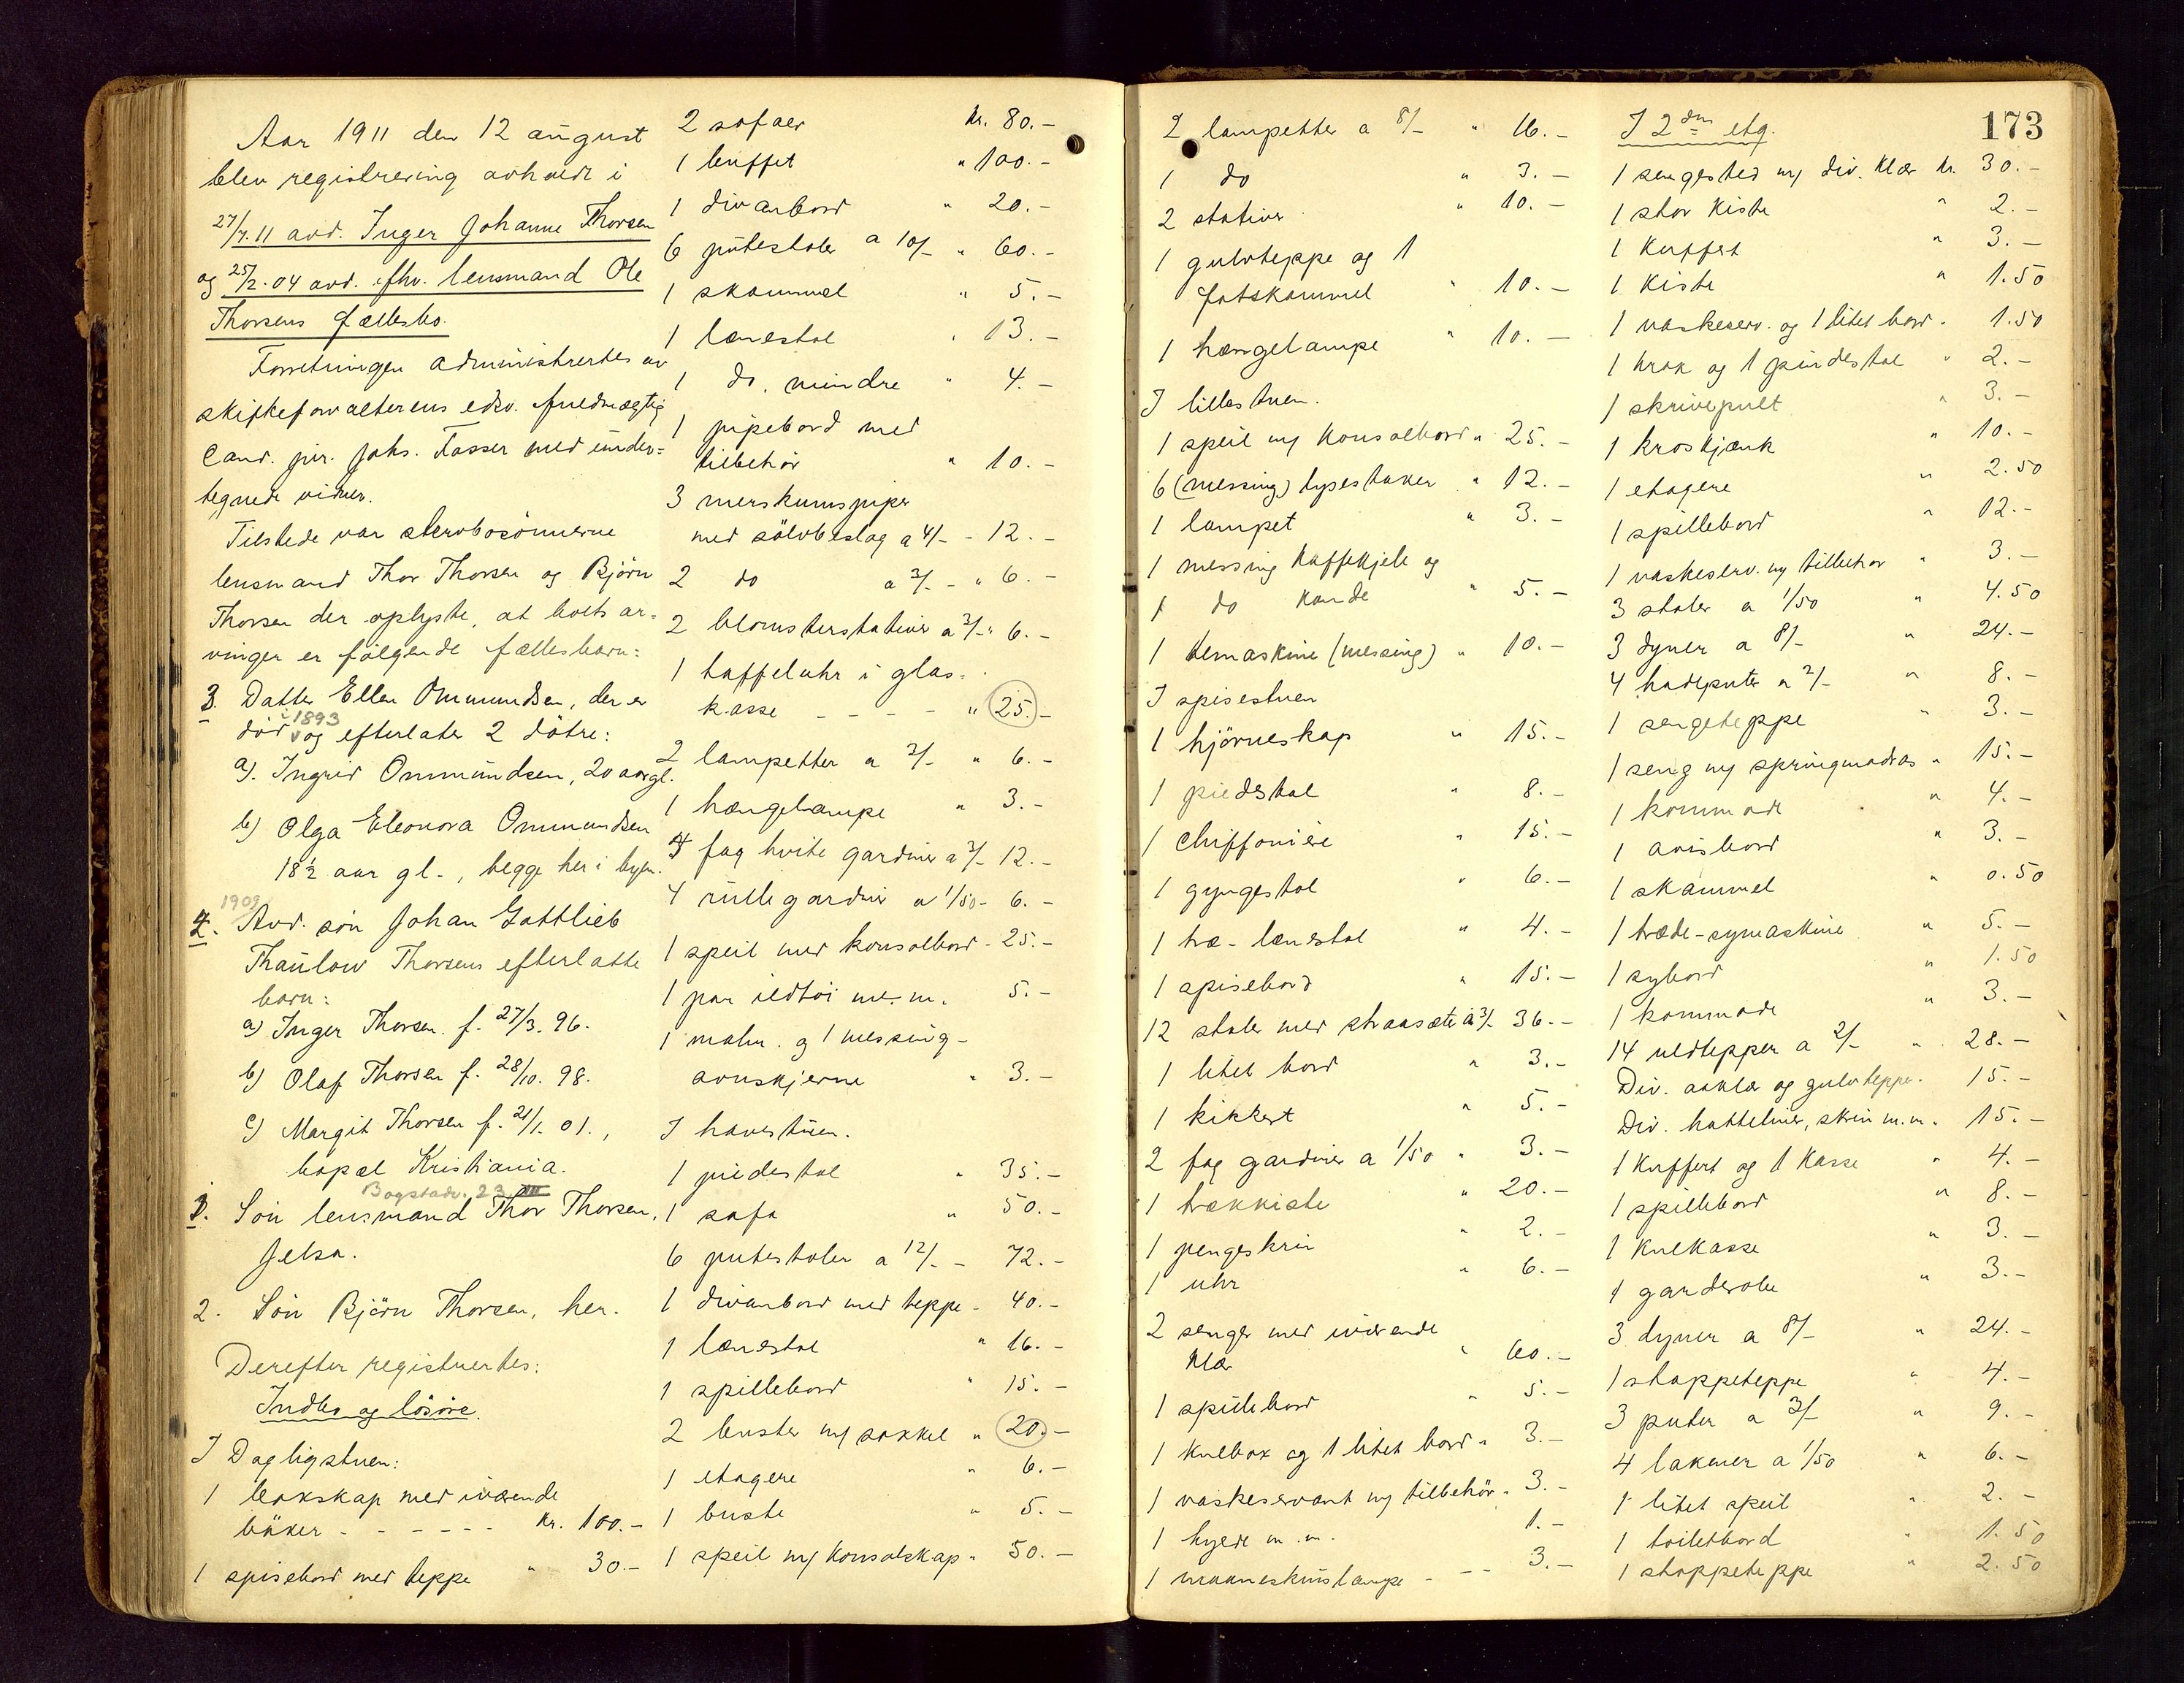 Aar 1911 den 12 august
blev registrering avholdt i
27/7.11 avd. Inger Johanne Thorsen
og 25/2.04 avd. fhv. lensmand Ole
Thorsens fællesbo.
Forretningen administrertes av
skifteforvalterens edsv. fuldmægtig
Cand. jur. Johs. Fasser med under=
tegnede vidner.
Tilstede var stervbosönnerne
lensmand Thor Thorsen og Björn
Thorsen der oplyste, at boets ar=
vinger er fölgende fællesbarn:
3. Datter Ellen Ommundsen, der er
död i 1893 og efterlater 2 dötre:
a). Ingrid Ommundsen, 20 aar gl.
b) Olga Eleonora Ommundsen
18 1/2 aar gl., begge her i byen.
1909
4. Avd. sön Johan Gottlieb
Thaulow Thorsens efterlatte
barn:
a) Inger Thorsen f. 27/3. 96.
b) Olaf Thorsen f. 28/10. 98.
c) Margit Thorsen f. 21/1. 01.,
bopæl Kristiania.
Bogstadv. 23 III
1. Sön lensmand Thor Thorsen,
Jelsa.
2. Sön Björn Thorsen, her.
Derefter registrertes:
Indbo og lösöre.
I Dagligstuen:
1 bokskap med iværende
böker - - - - - - kr. 100.-
1 spisebord med teppe " 30.-
2 sofaer kr. 80.-
1 buffet " 100.-
1 divanbord " 20.-
6 putestoler a 10/- " 60.-
1 skammel " 5.-
1 lænestol " 13.-
1 do. mindre " 4.-
1 pipebord med
tilbehör " 10.-
3 merskumspiper
med sölvbeslag a 4/- - 12.-
2 do a 3/- " 6.-
2 blomsterstativer a 3/- " 6.-
1 taffeluhr i glas=
kasse - - - - " 25.-
2 lampetter a 3/- " 6.-
1 hængelampe " 3.-
4 fag hvite gardiner a 3/- 12.-
4 rullegardiner a 1/50 - 6.-
1 speil med konsolbord - 25.-
1 par ildtöi m. m. 5.-
1 mahn. og 1 messing-
ovnskjerne " 3.-
I havestuen.
1 piedestal " 35.-
1 sofa " 50.-
6 putestoler a 12/- - 72.-
1 divanbord med teppe - 40.-
1 lænestol " 16.-
1 spillebord " 15.-
2 buster m/ sokkel " 20.-
1 etagere " 6.-
1 buste " 5.-
1 speil m/ Konsolskap " 50.-
2 lampetter a 8/- " 16.-
1 do " 3.-
2 stativer " 10.-
1 gulvteppe og 1
fotskammel " 10.-
1 hængelampe " 10.-
I lillestuen.
1 speil m/ konsolbord " 25.-
6 (messing) lysestaker " 12.-
1 lampet " 3.-
1 messing kaffekjele og
1 do kande " 5.-
1 temaskine (messing) " 10.-
I spisestuen
1 hjörneskap " 15.-
1 piedestal " 8.-
1 Chiffoniere " 15.-
1 gyngestol " 6.-
1 træ-lænestol " 4.-
1 spisebord " 15.-
12 stoler med straasæte à 3/- 36.-
1 litet bord " 3.-
1 kikkert " 5.-
2 fag gardiner a 1/50 " 3.-
1 trækkiste " 20.-
1 pengeskrin " 2.-
1 uhr " 6.-
2 senger med iværende
klær " 60.-
1 spillebord " 5.-
1 kulbox og 1 litet bord " 3.-
1 vaskeservant m/ tilbehör " 3.-
1 hylde m. m. 1.-
1 maaneskinslampe - - - 3.-
173
I 2den etg.
1 sengested m/ div. klær kr. 30.-
1 stor kiste " 2.-
1 Kuffert " 3.-
1 Kiste " 1.50
1 vaskeserv. og 1 litet bord " 1.50
1 krak og 1 pindestol " 2.-
1 skrivepult " 3.-
1 kroskjænk " 10.-
1 etagere " 2.50
1 spillebord " 12.-
1 vaskeserv. m/ tilbehör " 3.-
3 stoler a 1/50 " 4.50
3 dyner a 8/- " 24.-
4 hodeputer a 2/- " 8.-
1 sengeteppe " 3.-
1 seng m/ springmadras " 15.-
1 kommode " 4.-
1 avisbord " 3.-
1 skammel " 0.50
1 træde-symaskine " 5.-
1 sybord " 1.50
1 kommode " 3.-
14 uldtepper a 2/- " 28.-
Div. aaklær og gulvtepper " 15.-
Div. hatteliner, skrin m.m. " 15.-
1 Kuffert og 1 Kasse " 4.-
1 spillebord " 8.-
1 Kulkasse " 3.-
1 garderobe " 3.-
3 dyner a 8/- " 24.-
1 stoppeteppe " 4.-
3 puter a 3/- " 9.-
4 lakener a 1/50 " 6.-
1 litet speil " 2.-
1 toiletbord " 1.50
1 stoppeteppe " 2.50